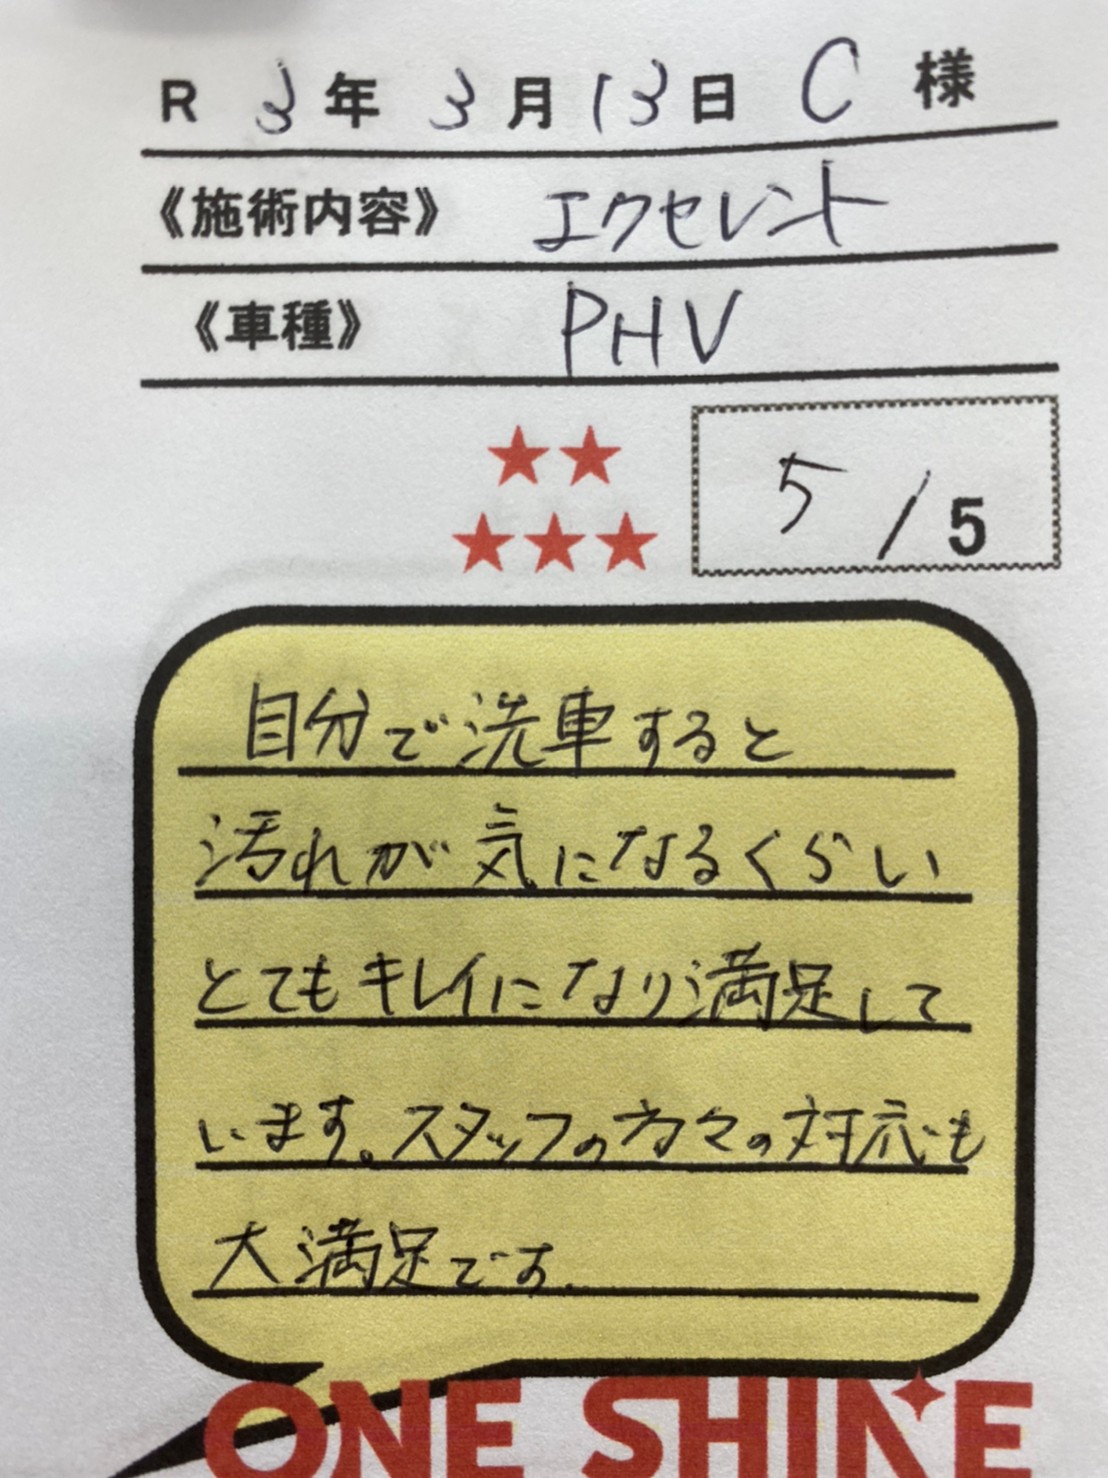 R 3年 3月 13日 C 様
《施術内容》 エクセレント
《車種》 PHV
5 / 5
自分で洗車すると
汚れが気になるくらい
とてもキレイになり満足して
います。スタッフの方々の対応も
大満足です.
ONE SHINE